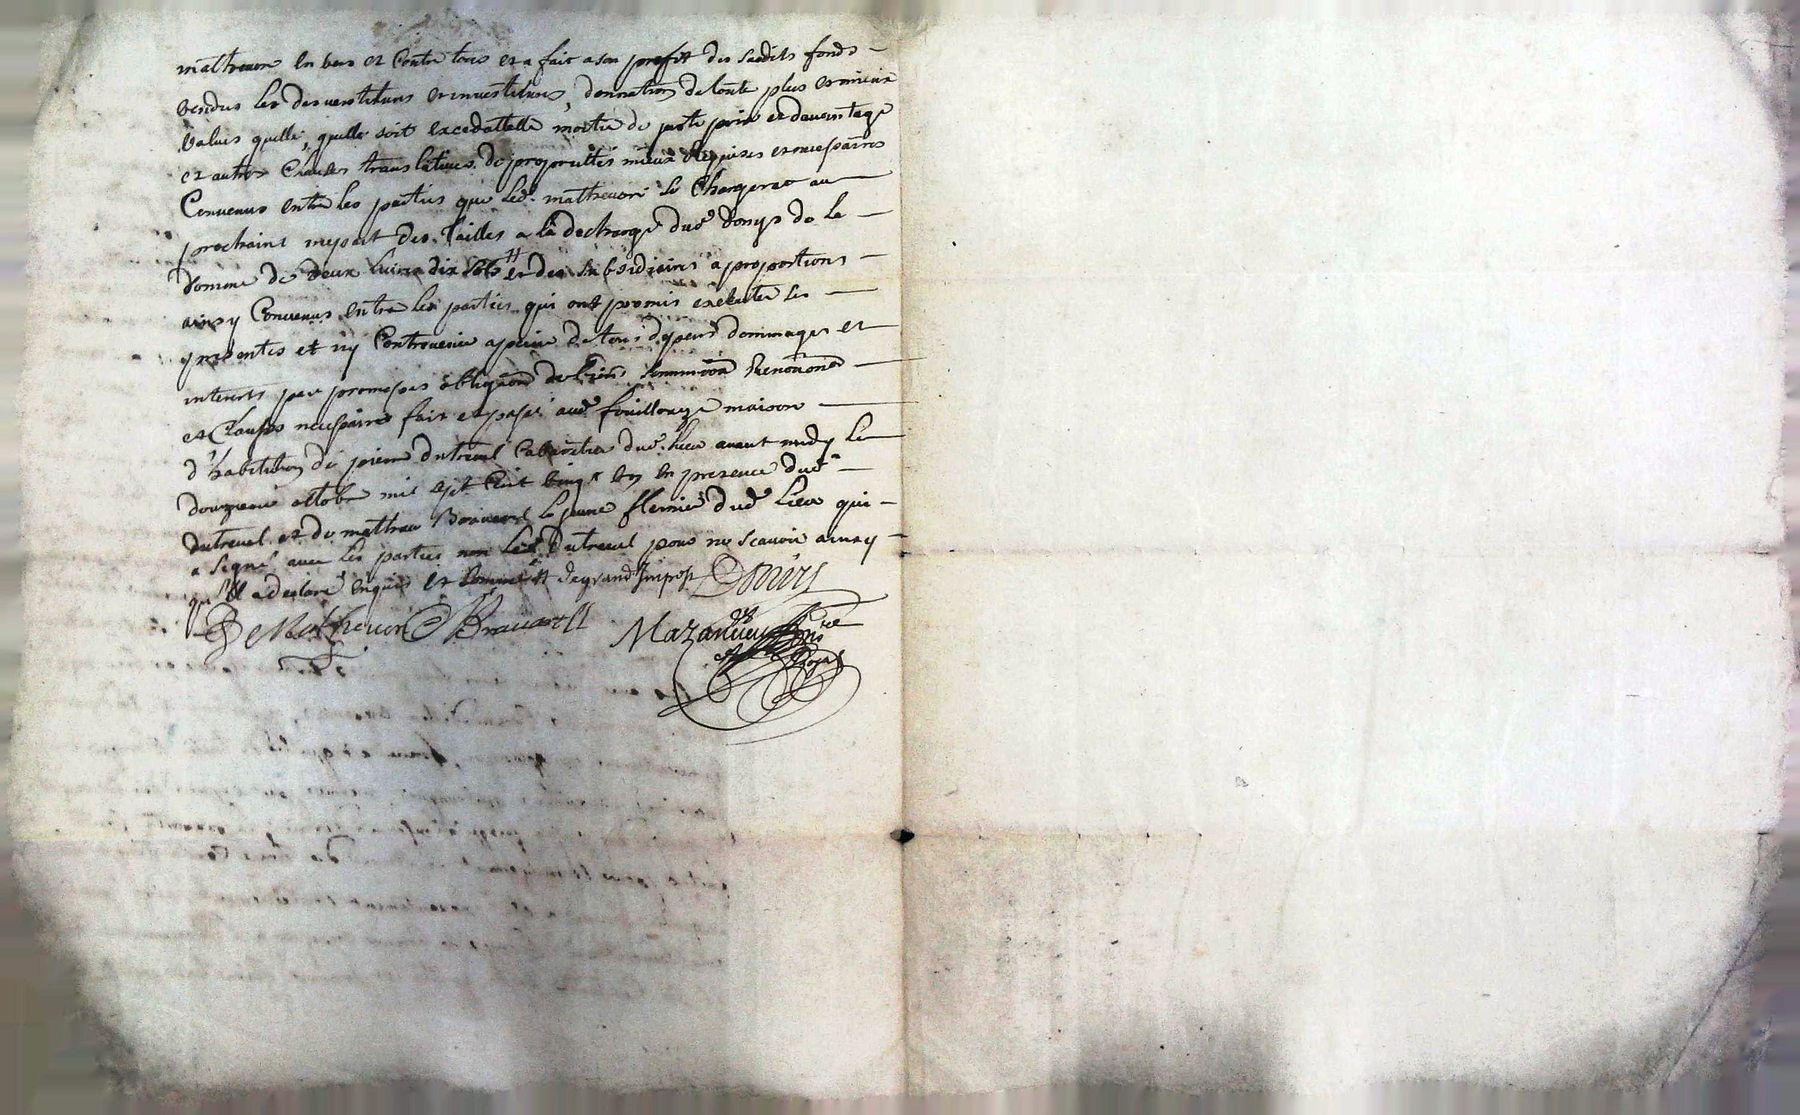 mathevon en vers et contre tous et a fait a son profit des susdits fonds
vendus les desvestitures et investitures, donnation de toute plus et mieux
values quelle, quelle soit excedatelle moitié de juste prix et davantage
et autres clauses translatives de proprietés mieux requises et necessaires
Convenus entre les parties que led. mathevon se Chargerat au
prochaint mypart des tailles a la decharge dud donys de la
somme de deux livres dix sols et des subsidiaires a proportions
ainsy Convenus entre les parties qui ont promis executer les
presentes et ny Controvenir a peine de tous depens dommages et
interets par promesses obligaon de biens renonciaon
et Clauses necessaires fait et passé aud fouillouze maison
d'habitation de pierre dutreul Cabaretier dud. lieu avant midy le
octobre mil sept Cent vingt en presence dud
dutreul et de mathieu le jeune dud lieu qui
a signé avec les parties non led Dutreul pour ne scavoir ainsy
qu'il a declaré enquis et sommé Donys
Mathevon
Mazanieu
Royal